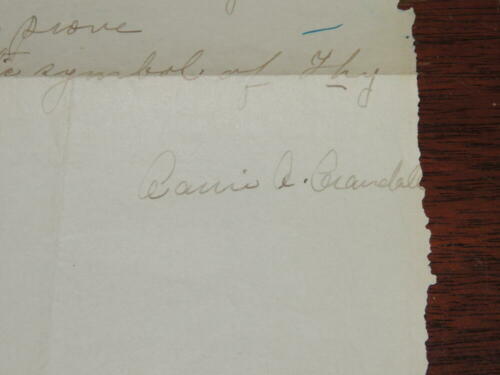 prove
symbol of Thy
Carrie A. Crandall